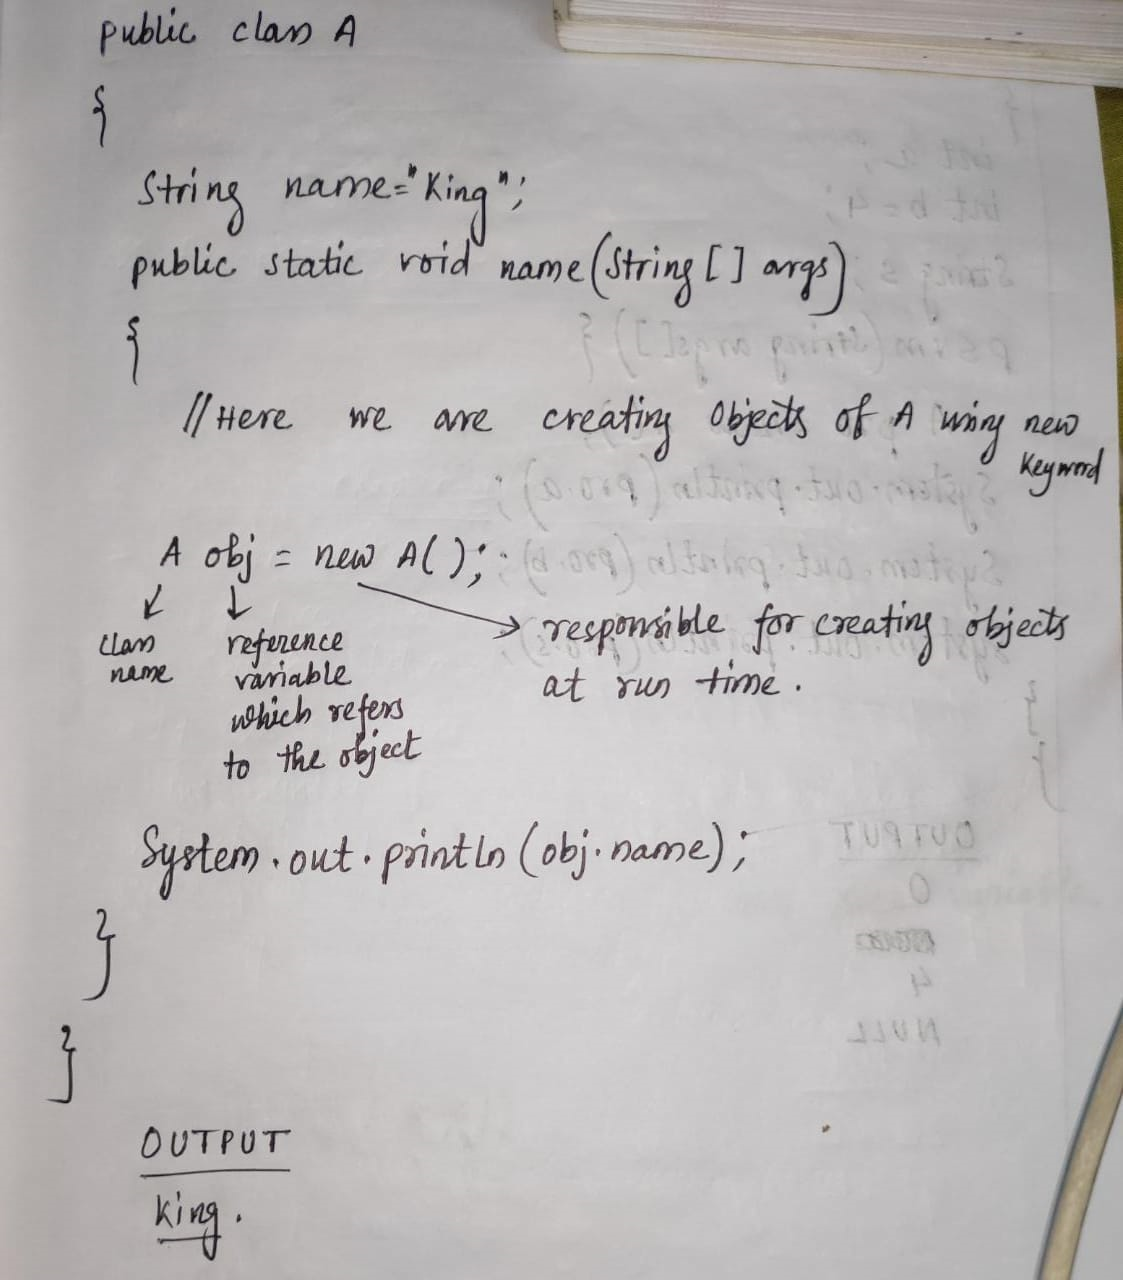 public class A
{
String name="King";
public static void name(String [] args)
{
//Here we are creating Objects of A using new
Keyword
A obj = new A();
class
name
reference
variable
which refers
to the object
responsible for creating objects
at run time.
System.out.println(obj.name);
}
}
OUTPUT
King.